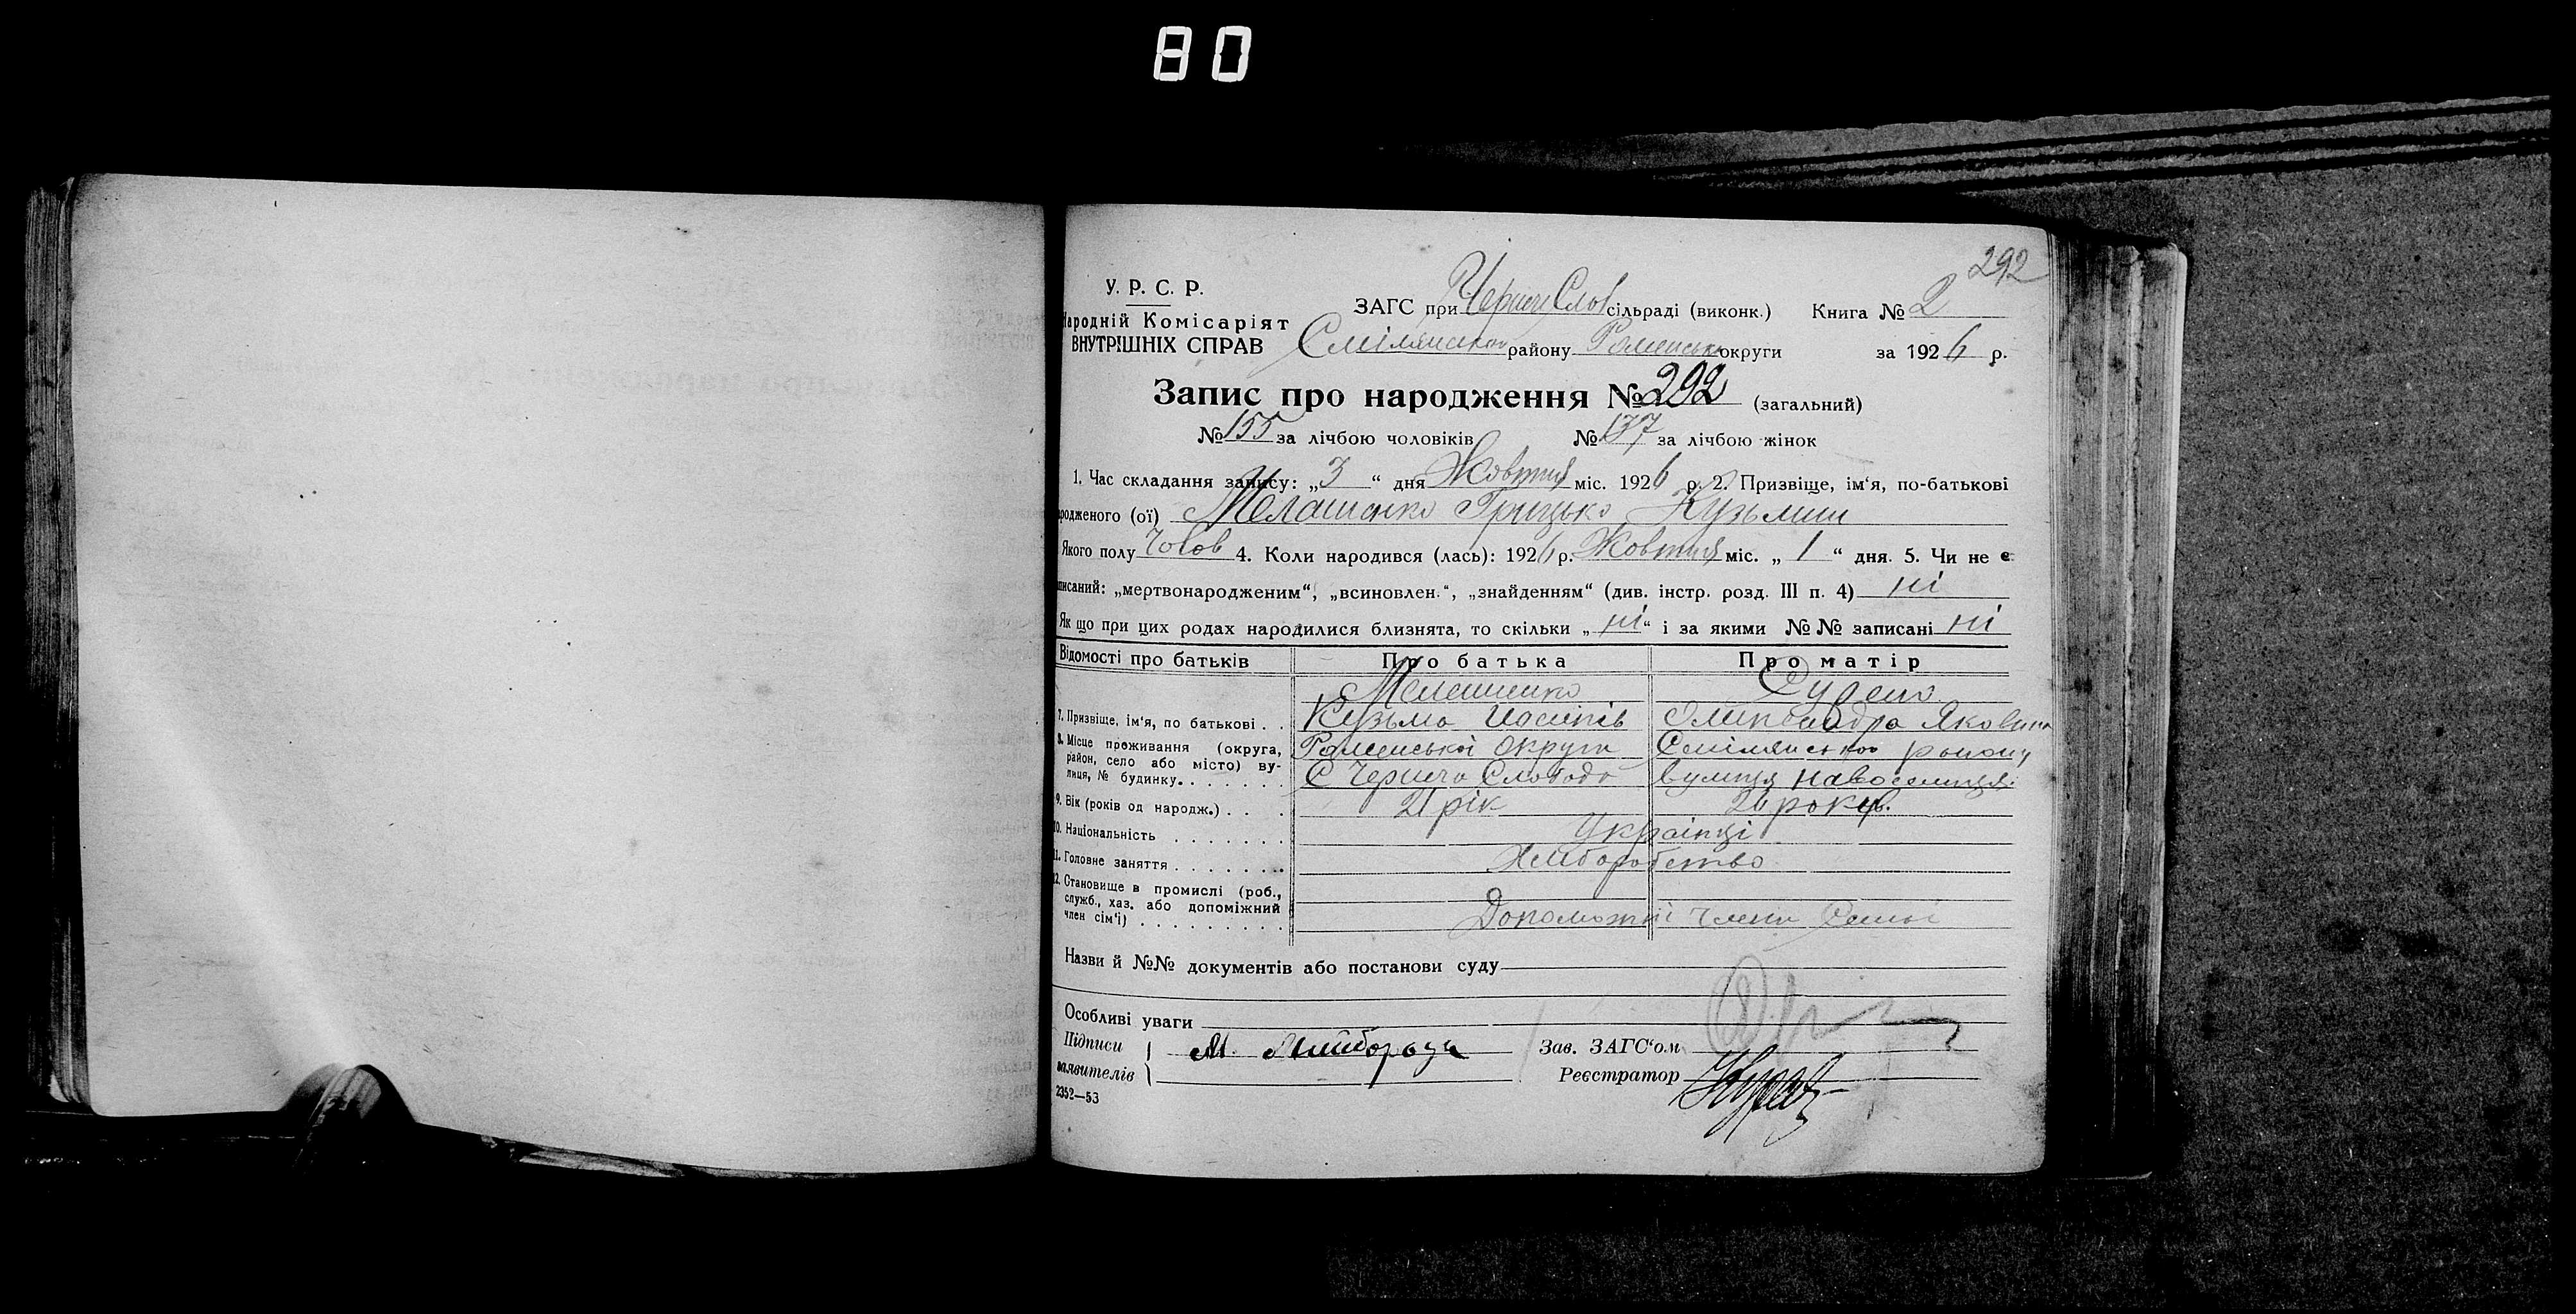 80
292
У. Р. С. Р.
ЗАГС при Черн. Слоб сільраді (виконк.) Книга № 2
Народній Комісаріят
ВНУТРІШНІХ СПРАВ Смілянсько району Роменсько округи за 1926 р.
Запис про народження № 292 (загальний)
№ 155 за лічбою чоловіків № 137 за лічбою жінок
1. Час складання запису: „3“ дня Жовтня міс. 1926 р. 2. Призвіще, ім‘я, по-батькові
родженого (ої) Мелашенко Грицько Кузьмин
Якого полу Чолов 4. Коли народився (лась): 1926 р. Жовтня міс. „1“ дня. 5. Чи не є
писаний: „мертвонародженим“, „всиновлен.“, „знайденням“ (див. інстр. розд. III п. 4) ні
Як що при цих родах народилися близнята, то скільки „ні“ і за якими №№ записані ні
Відомості про батьків Про батька Про матір
Мелашенко
7. Призвіще, ім‘я, по батькові . . Кузьма Иосипів Олександра Яковина
8. Місце проживання (округа, район, село або місто) вулиця, № будинку. Роменської Округи Смілянсько району
С Чернеча Слобода вулиця Новоселиця
9. Вік (років од народж.) . . . 21 рік 20 років.
10. Національність Українці
11. Головне заняття Хліборобство
12. Становище в промислі (роб., служб., хаз. або допоміжний член сім‘ї) Допоможні Члени Семьї
Назви й №№ документів або постанови суду
Особливі уваги
Підписи заявителів М. Зав. ЗАГС‘ом
Реєстратор
2352—53